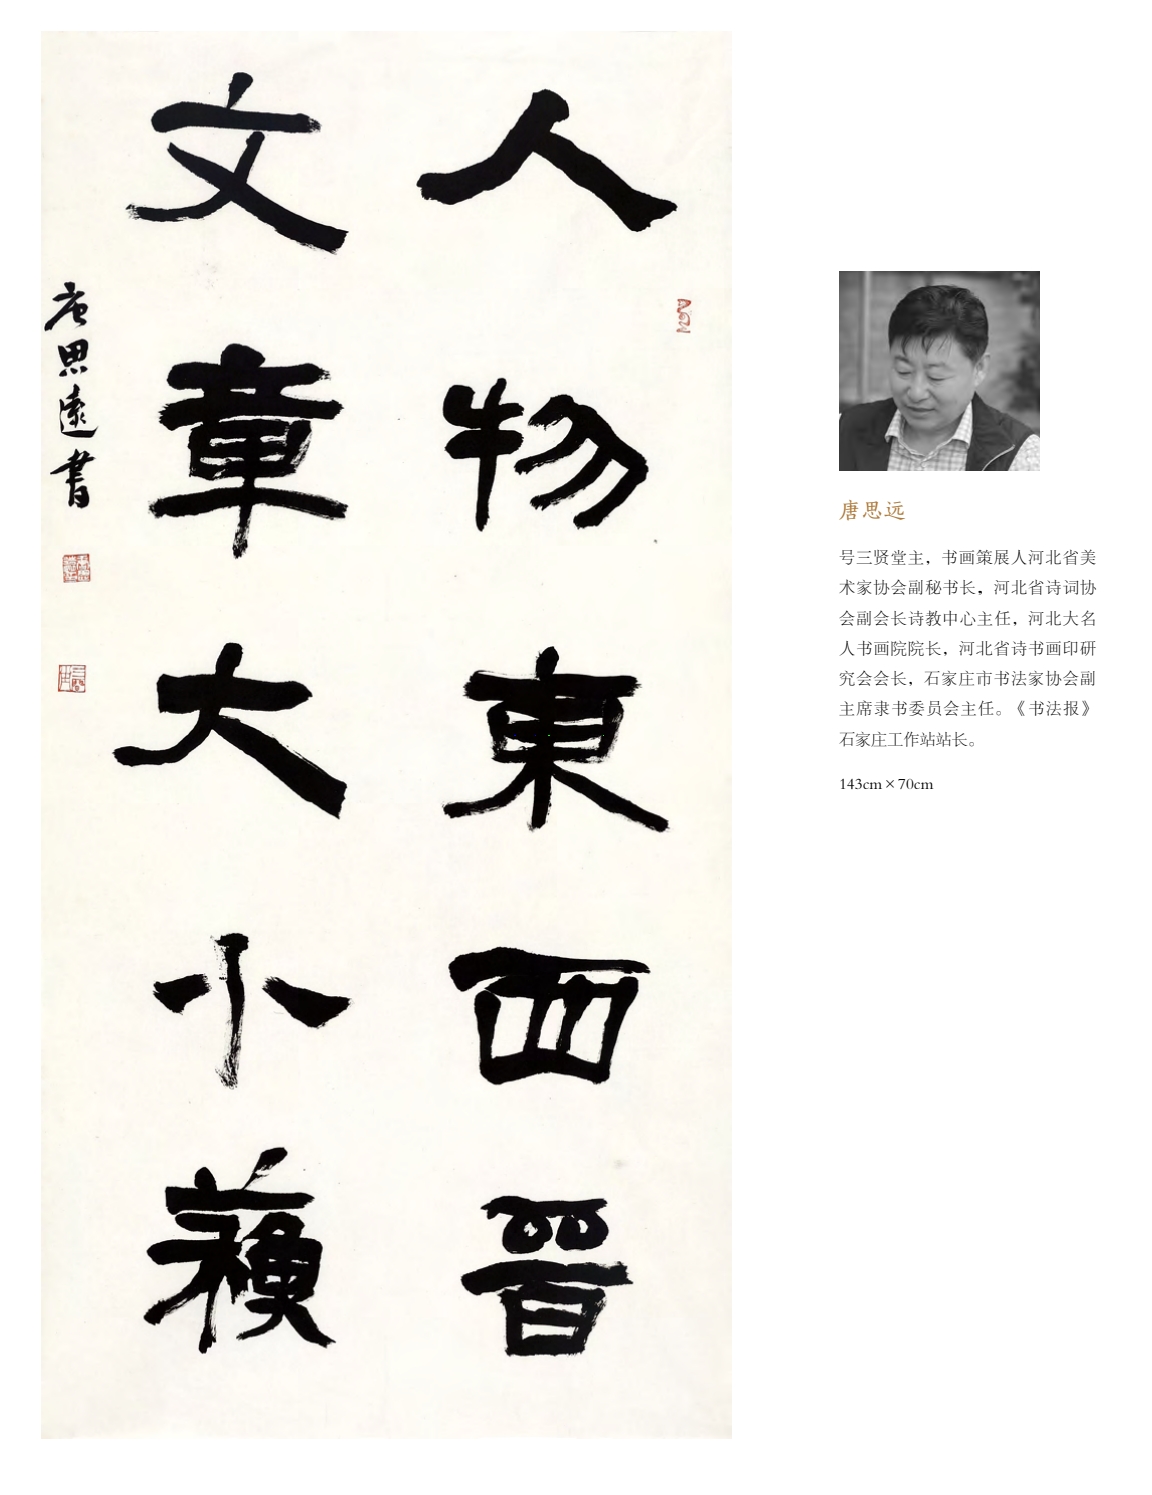 人物東西晉
文章大小蘇
唐思遠書
唐思远
号三贤堂主，书画策展人河北省美
术家协会副秘书长，河北省诗词协
会副会长诗教中心主任，河北大名
人书画院院长，河北省诗书画印研
究会会长，石家庄市书法家协会副
主席隶书委员会主任。《书法报》
石家庄工作站站长。
143cm×70cm